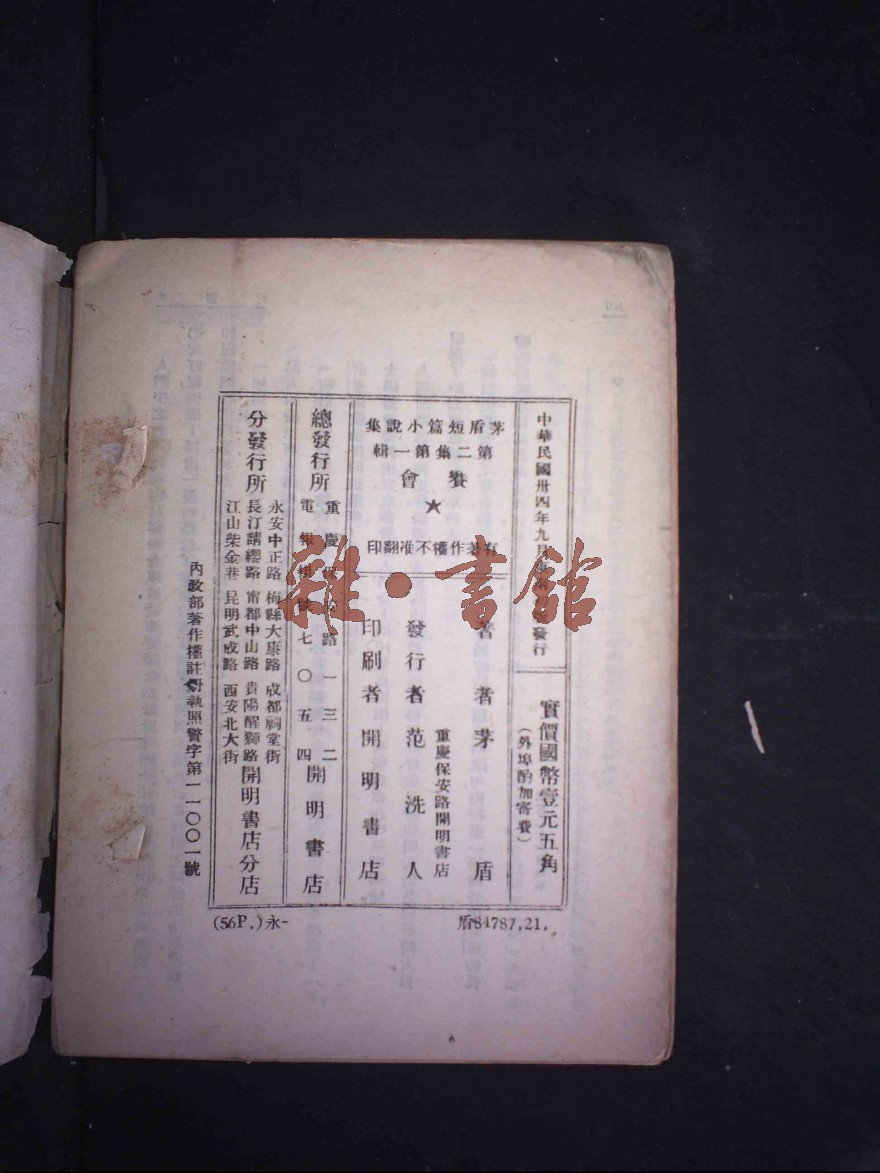 中華民國卅四年九月 發行
實價國幣壹元五角
（外埠酌加寄費）
茅盾短篇小說集
第二集第一輯
賽會
★
有著作權不准翻印
著者茅盾
重慶保安路開明書店
發行者范洗人
印刷者開明書店
總發行所
重慶保安路一三二
電報掛號七〇五四
開明書店
分發行所
永安中正路 梅縣大康路 成都祠堂街
長汀請纓路 甯都中山路 貴陽醒獅路
江山柴金巷 昆明武成路 西安北大街
開明書店分店
內政部著作權註冊執照警字第一一〇〇一號
(56P.)永-
盾84787,21.
雜·書館